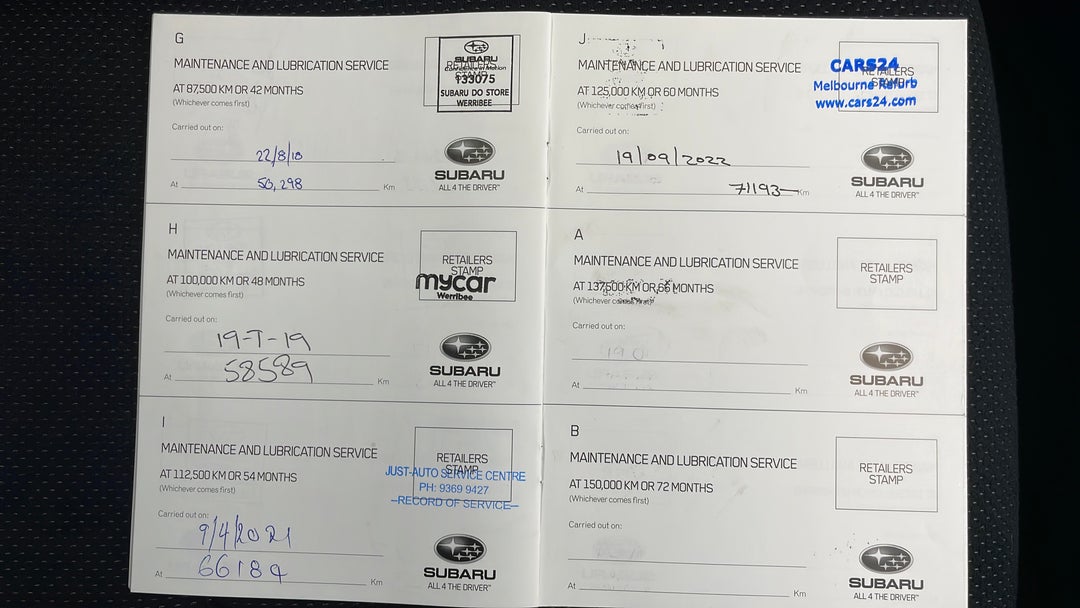 G
MAINTENANCE AND LUBRICATION SERVICE
AT 87,500 KM OR 42 MONTHS
(Whichever comes first)
Carried out on:
22/8/18
At 50,298 Km
RETAILERS
STAMP
SUBARU
133075
SUBARU DO STORE
WERRIBEE
SUBARU
ALL 4 THE DRIVER™
H
MAINTENANCE AND LUBRICATION SERVICE
AT 100,000 KM OR 48 MONTHS
(Whichever comes first)
Carried out on:
19-7-19
At 58589 Km
RETAILERS
STAMP
mycar
Werribee
SUBARU
ALL 4 THE DRIVER™
I
MAINTENANCE AND LUBRICATION SERVICE
AT 112,500 KM OR 54 MONTHS
(Whichever comes first)
Carried out on:
9/4/2021
At 66184 Km
RETAILERS
STAMP
JUST-AUTO SERVICE CENTRE
PH: 9369 9427
–RECORD OF SERVICE–
SUBARU
ALL 4 THE DRIVER™
J
MAINTENANCE AND LUBRICATION SERVICE
AT 125,000 KM OR 60 MONTHS
(Whichever comes first)
Carried out on:
19/09/2022
At 71193 Km
RETAILERS
STAMP
CARS24
Melbourne Refurb
www.cars24.com
SUBARU
ALL 4 THE DRIVER™
A
MAINTENANCE AND LUBRICATION SERVICE
AT 137,500 KM OR 66 MONTHS
(Whichever comes first)
Carried out on:
At Km
RETAILERS
STAMP
SUBARU
ALL 4 THE DRIVER™
B
MAINTENANCE AND LUBRICATION SERVICE
AT 150,000 KM OR 72 MONTHS
(Whichever comes first)
Carried out on:
At Km
RETAILERS
STAMP
SUBARU
ALL 4 THE DRIVER™